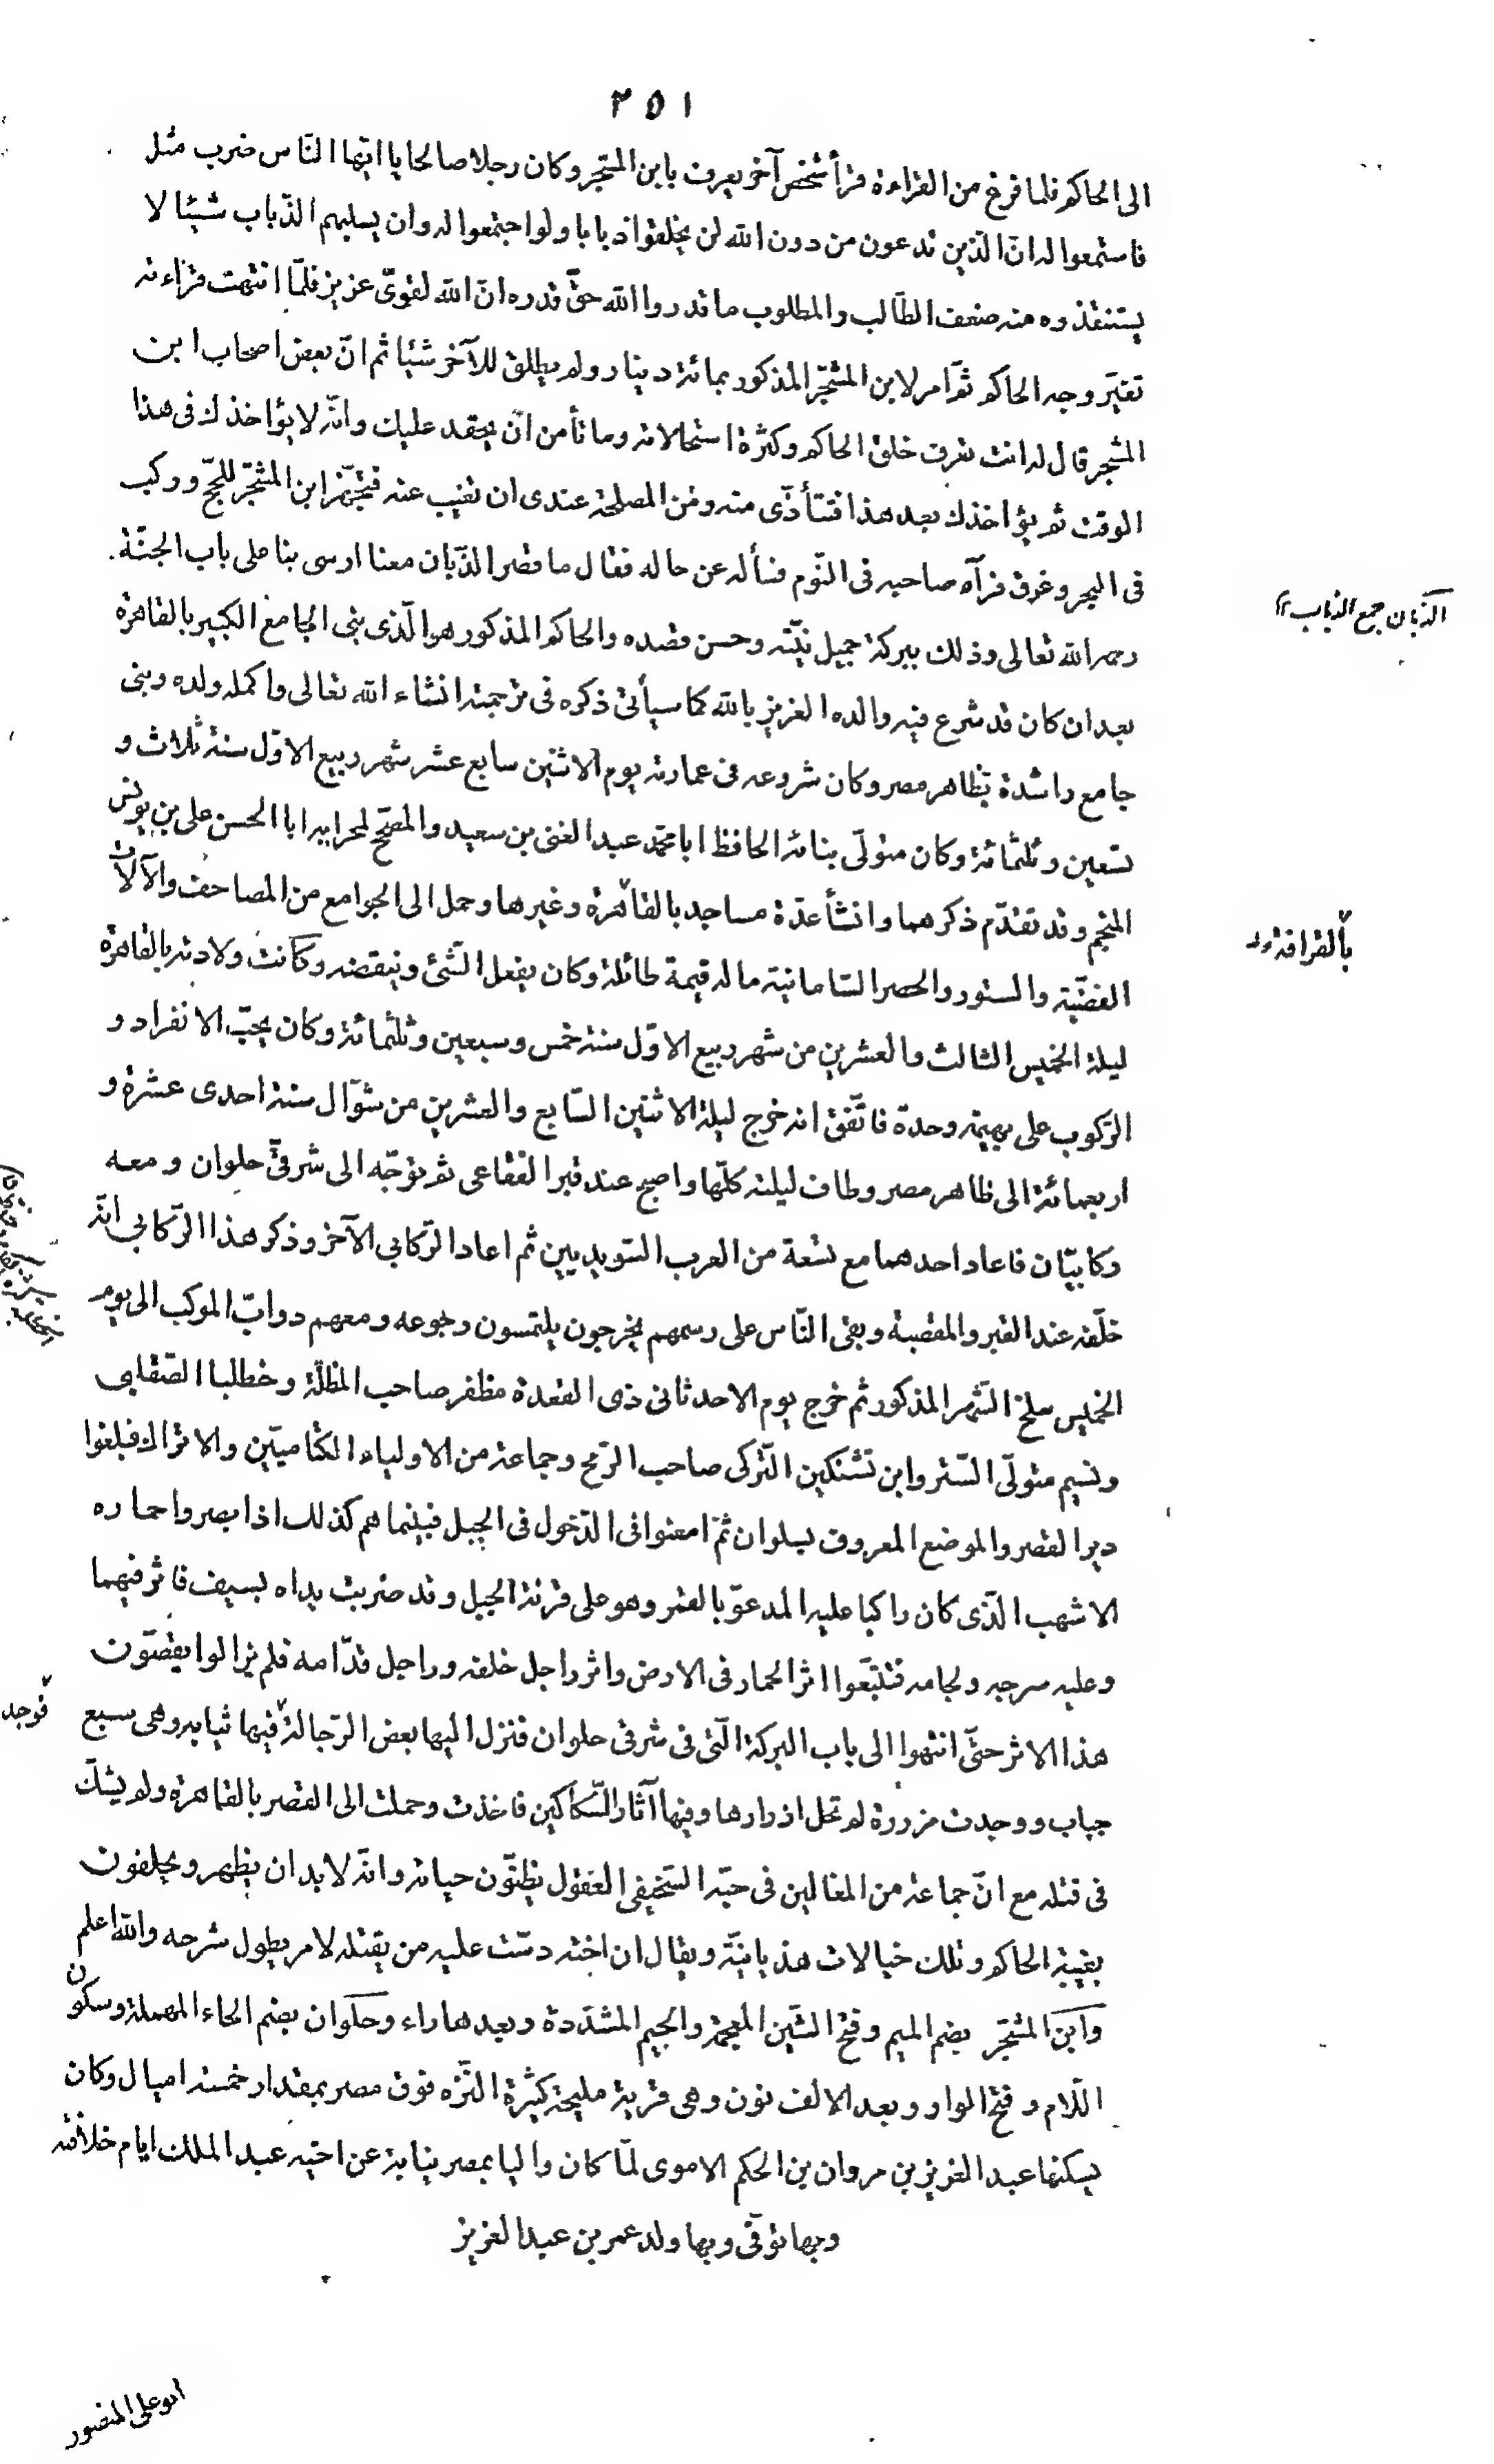 ٢٥١
الى الحاكم فلما فرغ من القراءة قرأ شخص آخر يعرف بابن المشجر وكان رجلا صالحا يا ايّها النّاس ضرب مثل
فاستمعوا له انّ الّذين تدعون من دون الله لن يخلقوا ذبابا ولو اجتمعوا له وان يسلبهم الذّباب شيئا لا
يستنقذوه منه ضعف الطّالب والمطلوب ما قدروا الله حقّ قدره انّ الله لقوىّ عزيز فلمّا انتهت قراءته
تغيّر وجه الحاكم ثمّ امر لابن المشجّر المذكور بمائة دينار ولم يطلق للآخر شيئا ثم انّ بعض اصحاب ابن
المشجر قال له انت تعرف خلق الحاكم وكثرة استحالاته وما تأمن ان يحقد عليك وانّه لا يؤاخذك فى هذا
الوقت ثم يؤاخذك بعد هذا فتتأذّى منه ومن المصلحة عندى ان تغيب عنه فتجهّز ابن المشجّر للحجّ وركب
فى البحر وغرق فرآه صاحبه فى النّوم فسأله عن حاله فقال ما قصر الذّبان معنا ارسى بنا على باب الجنّة
الذّبان جمع الذباب
رحمه الله تعالى وذلك ببركة جميل نيّته وحسن قصده والحاكم المذكور هو الّذى بنى الجامع الكبير بالقاهرة
بعد ان كان قد شرع فيه والده العزيز بالله كما سيأتى ذكره فى ترجمته انشاء الله تعالى واكمله ولده وبنى
جامع راشدة بظاهر مصر وكان شروعه فى عمارته يوم الاثنين سابع عشر شهر ربيع الاوّل سنة ثلاث و
تسعين وثلثمائة وكان متولّى بنائه الحافظ ابا محمّد عبد الغنى بن سعيد والمصحّح لمحرابه ابا الحسن على بن يونس
المنجم وقد تقدّم ذكرهما وانشأ عدّة مساجد بالقاهرة وغيرها وحمل الى الجوامع من المصاحف والآلات
بالقرافة
الفضّيّة والستور والحصر السّامانية ماله قيمة طائلة وكان يفعل الشّئ وينقضه وكانت ولادته بالقاهرة
ليلة الخميس الثالث والعشرين من شهر ربيع الاوّل سنة خمس وسبعين وثلثمائة وكان يحبّ الانفراد و
الرّكوب على بهيمة وحدة فاتّفق انه خرج ليلة الاثنين السّابع والعشرين من شوّال سنة احدى عشرة و
اربعمائة الى ظاهر مصر وطاف ليلته كلّها واصبح عند قبر الفقاعى ثم توجّه الى شرقىّ حلوان ومعه
ركابيّان فاعاد احدهما مع تسعة من العرب السّويديين ثم اعاد الرّكابى الآخر وذكر هذا الرّكابى انّه
خلّفه عند القبر والمقصبة وبقى النّاس على رسمهم يخرجون يلتمسون رجوعه ومعهم دوابّ الموكب الى يوم
الخميس سلخ الشّهر المذكور ثم خرج يوم الاحد ثانى ذى القعدة مظفر صاحب المظلّة وخطلبا الصّقلبى
ونسيم متولّى السّتر وابن تشتكين التّركى صاحب الرّمح وجماعة من الاولياء الكتاميّين والاتراك فبلغوا
دير القصر والموضع المعروف بسلوان ثمّ امعنوا فى الدّخول فى الجبل فبينما هم كذلك اذا بصروا حماره
الاشهب الّذى كان راكبا عليه المدعوّ بالقمر وهو على قرنة الجبل وقد ضربت يداه بسيف فاثر فيهما
وعليه سرجه ولجامه فتتبّعوا اثر الحمار فى الارض واثر راجل خلفه وراجل قدّامه فلم يزالوا يقصّون
هذا الاثر حتّى انتهوا الى باب البركة الّتى فى شرقى حلوان فنزل اليها بعض الرّجالة فيها ثيابه وهى سبع
فوجد
جباب ووجدت مزررة لم تحل ازرارها وفيها آثار السّكاكين فاخذت وحملت الى القصر بالقاهرة ولم يشكّ
فى قتله مع انّ جماعة من المغالين فى حبّه السّخيفى العقول يظنّون حياته وانّه لا بد ان يظهر ويحلفون
بغيبة الحاكم وتلك خيالات هذيانيّة ويقال ان اخته دسّت عليه من يقتله لامر يطول شرحه والله اعلم
وابن المشجّر بضم الميم وفتح الشّين المعجمة والجيم المشدّدة وبعدها راء وحلوان بضم الحاء المهملة وسكون
اللّام وفتح الواو وبعد الالف نون وهى قرية مليحة كثيرة النّزه فوق مصر بمقدار خمسة اميال وكان
يسكنها عبد العزيز بن مروان بن الحكم الاموى لمّا كان واليا بمصر نيابة عن اخيه عبد الملك ايام خلافته
وبها توفّى وبها ولد عمر بن عبد العزيز
ابو على المنصور